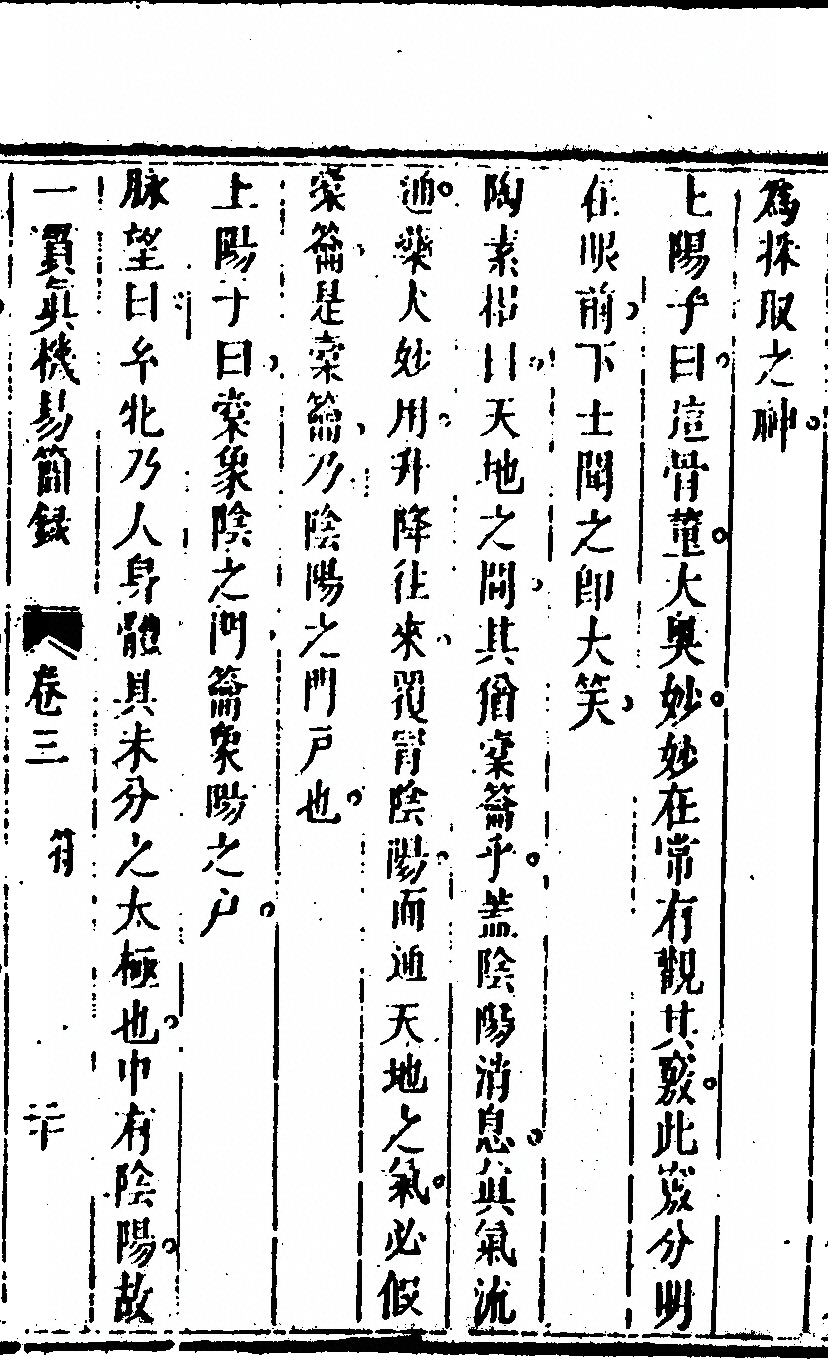 爲採取之神
上陽子曰這骨董大奧妙妙在常有觀其竅此竅分明
在眼前下士聞之卽大笑
陶素耜曰天地之間其猶橐籥乎蓋陰陽消息眞氣流
通藥火妙用升降往來罔不胥陰陽而通天地之氣必假
橐籥是橐籥乃陰陽之門戸也
上陽子曰橐象陰之門籥象陽之戸
脉望曰玄牝乃人身體具未分之太極也中有陰陽故
一貫眞機易簡録
卷三
符
二十